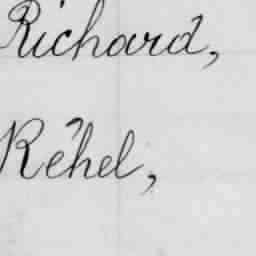 Richard,
Réhel,